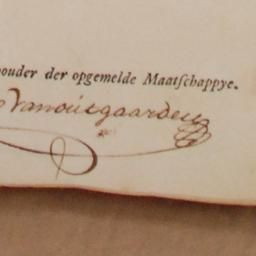 ouder der opgemelde Maatſchappye.
Vanoutgaarden